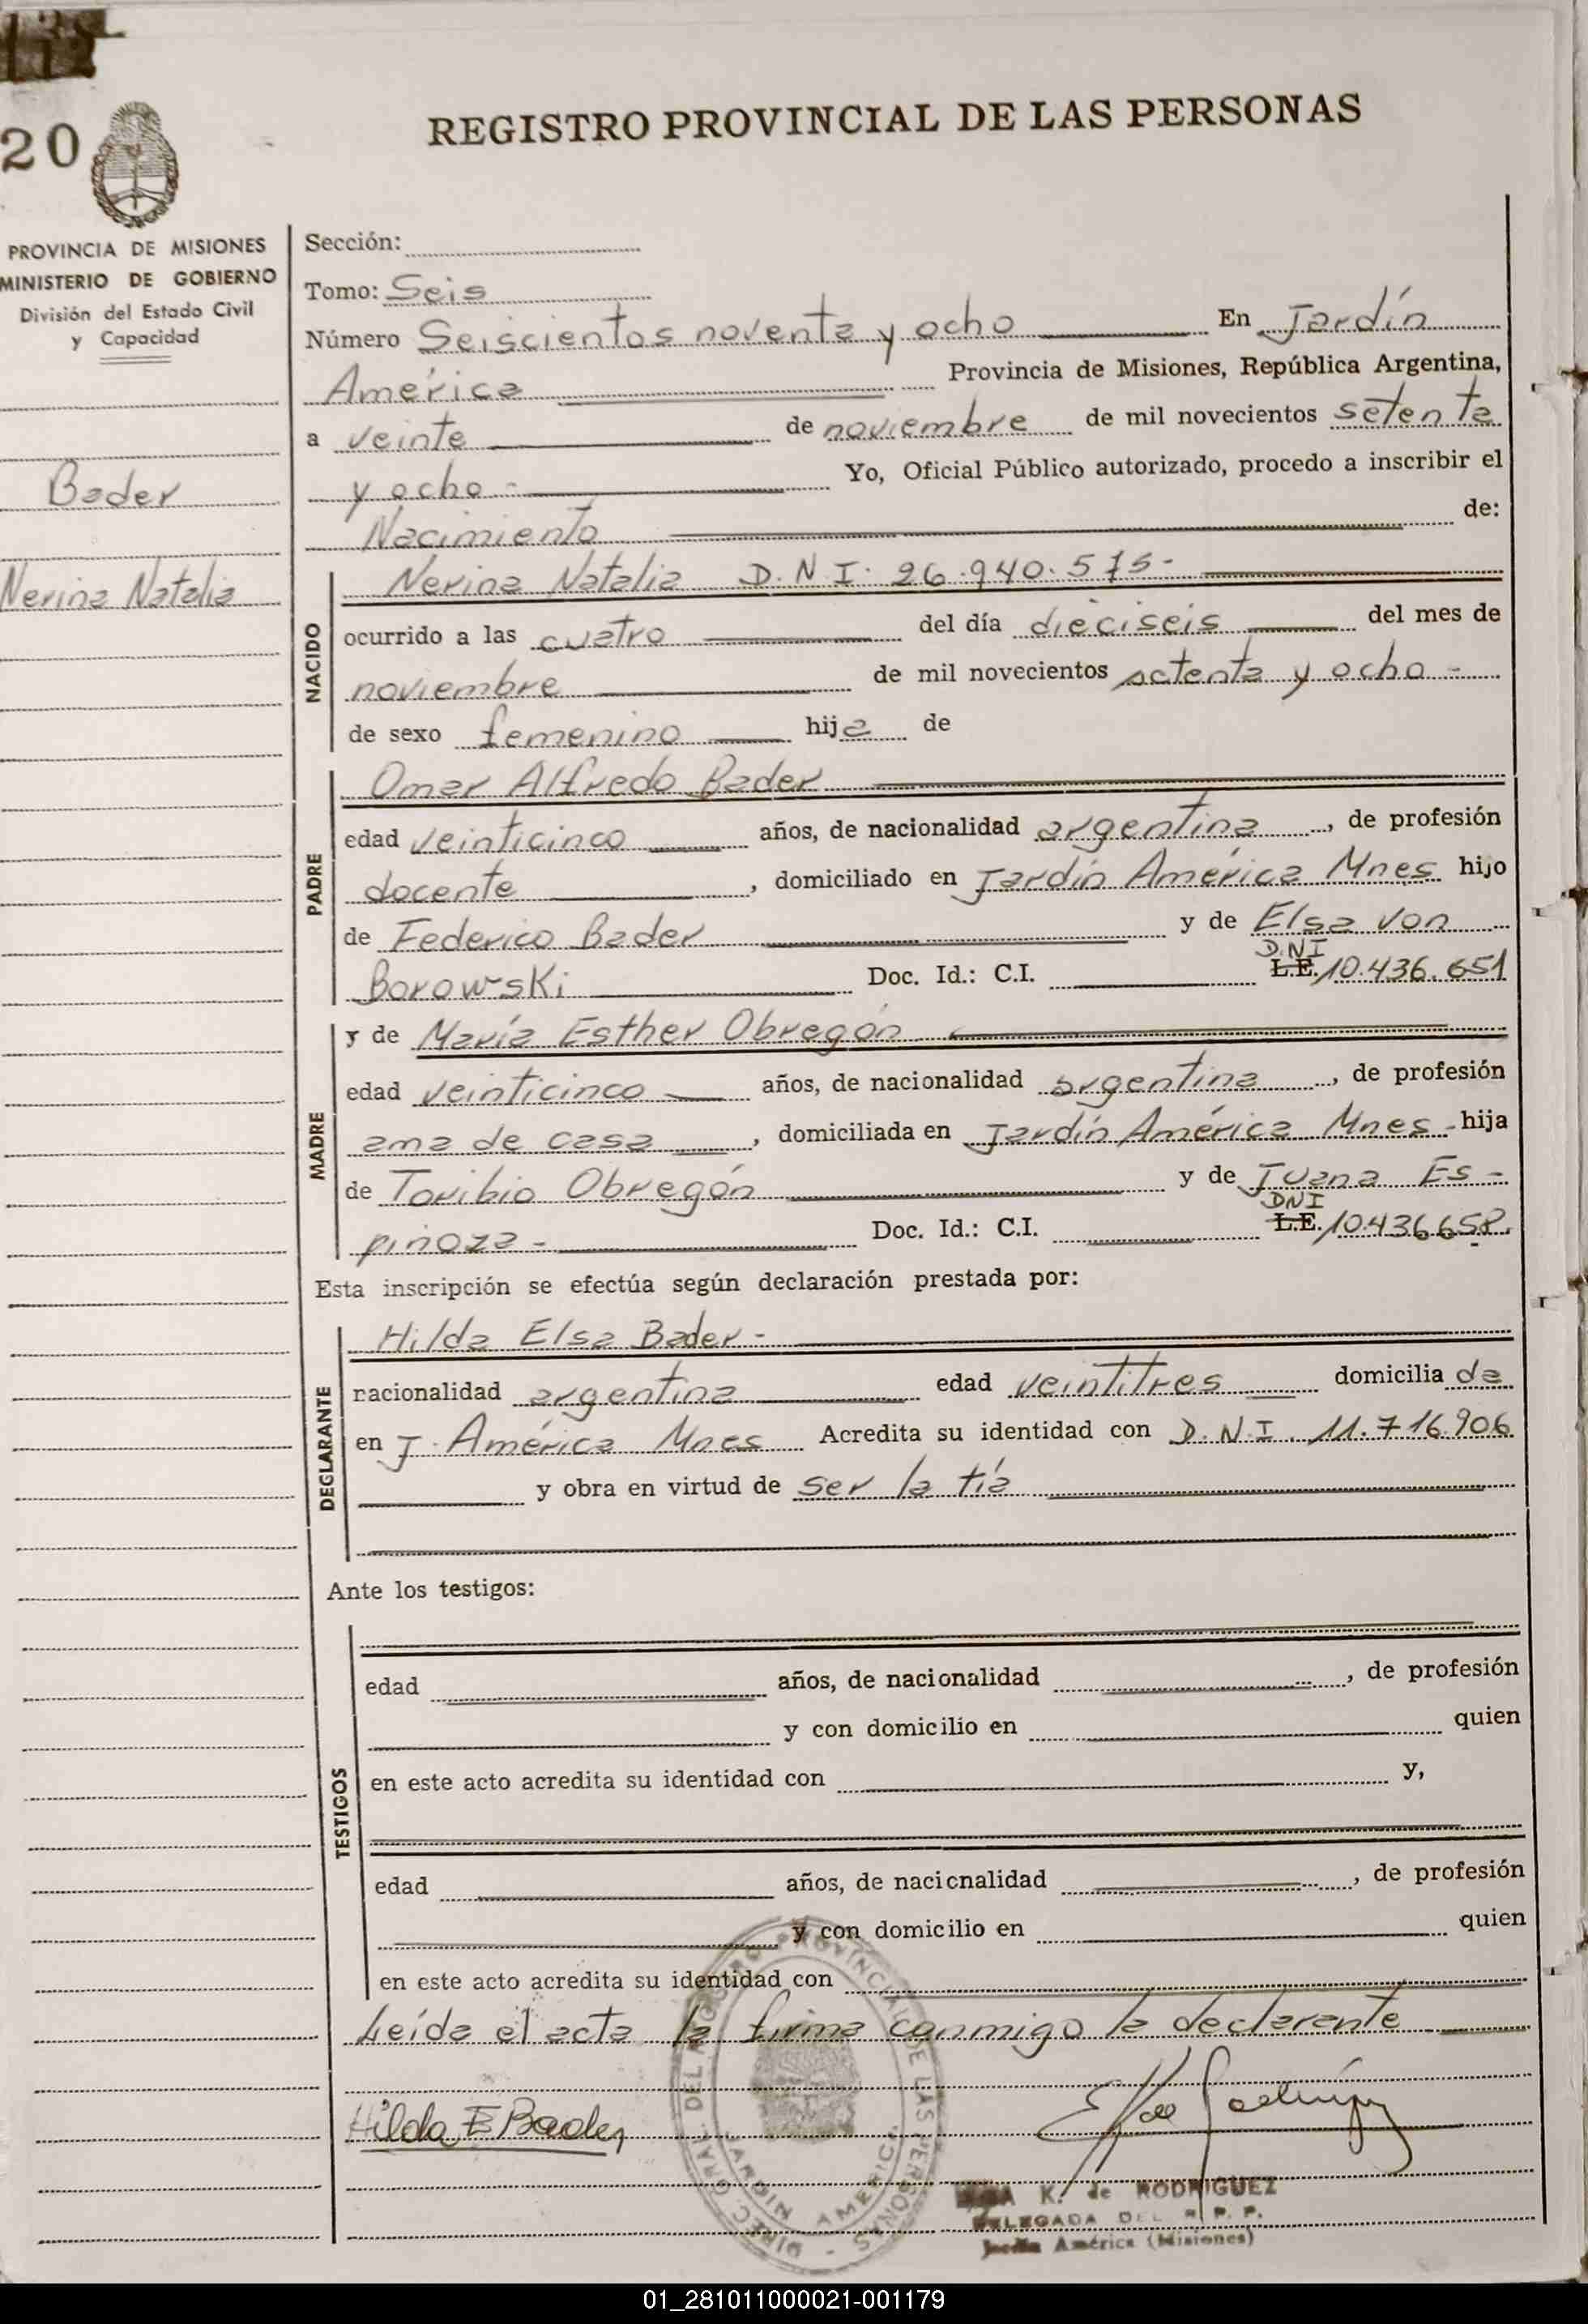 20
REGISTRO PROVINCIAL DE LAS PERSONAS
PROVINCIA DE MISIONES
MINISTERIO DE GOBIERNO
División del Estado Civil
y Capacidad
Bader
Nerina Natalia
Sección:
Tomo: Seis
Número Seiscientos noventa y ocho En Jardín
América Provincia de Misiones, República Argentina,
a veinte de noviembre de mil novecientos setenta
y ocho - Yo, Oficial Público autorizado, procedo a inscribir el
Nacimiento de:
NACIDO
Nerina Natalia D.N.I. 26.940.575-
ocurrido a las cuatro del día dieciseis del mes de
noviembre de mil novecientos setenta y ocho -
de sexo femenino hija de
PADRE
Omar Alfredo Bader
edad veinticinco años, de nacionalidad argentina, de profesión
docente, domiciliado en Jardín América Mnes hijo
de Federico Bader y de Elsa von
Borowski Doc. Id.: C.I. L.E. DNI 10.436.651
MADRE
y de María Esther Obregón
edad veinticinco años, de nacionalidad argentina, de profesión
ama de casa, domiciliada en Jardín América Mnes - hija
de Toribio Obregón y de Juana Es-
pinoza - Doc. Id.: C.I. L.E. DNI 10.436.658.
Esta inscripción se efectúa según declaración prestada por:
DECLARANTE
Hilda Elsa Bader -
nacionalidad argentina edad veintitres domicilia da
en J. América Mnes Acredita su identidad con D.N.I. 11.716.906
y obra en virtud de ser la tía
Ante los testigos:
TESTIGOS
edad años, de nacionalidad , de profesión
y con domicilio en quien
en este acto acredita su identidad con y,
edad años, de nacicnalidad , de profesión
y con domicilio en quien
en este acto acredita su identidad con
Leída el acta la firma conmigo la declarante
Hilda E Bader
DIREC. GRAL. DEL REGISTRO PROVINCIAL DE LAS PERSONAS -
JARDIN AMERICA
K. de RODRIGUEZ
DELEGADA DEL R. P. P.
Jardín América (Misiones)
01_281011000021-001179